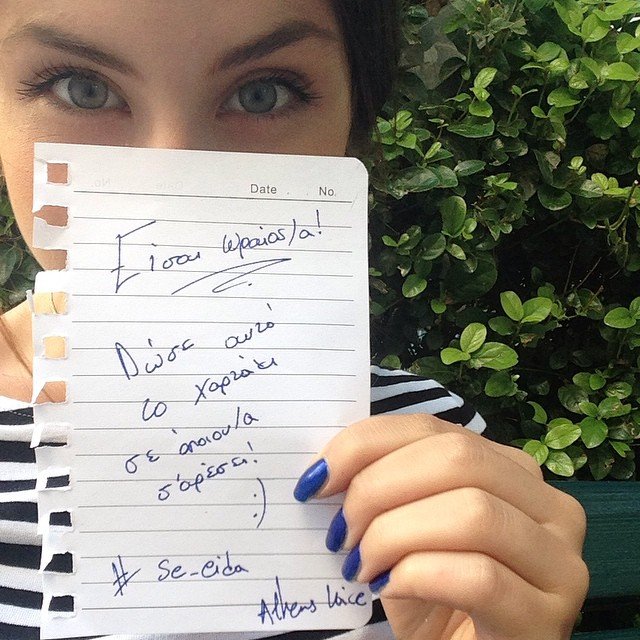 Date . No.
Είσαι ωραίος/α!
Δώσε αυτό
το χαρτάκι
σε όποιον/α
σ'αρέσει!
:)
# Se-eida
Athens Voice